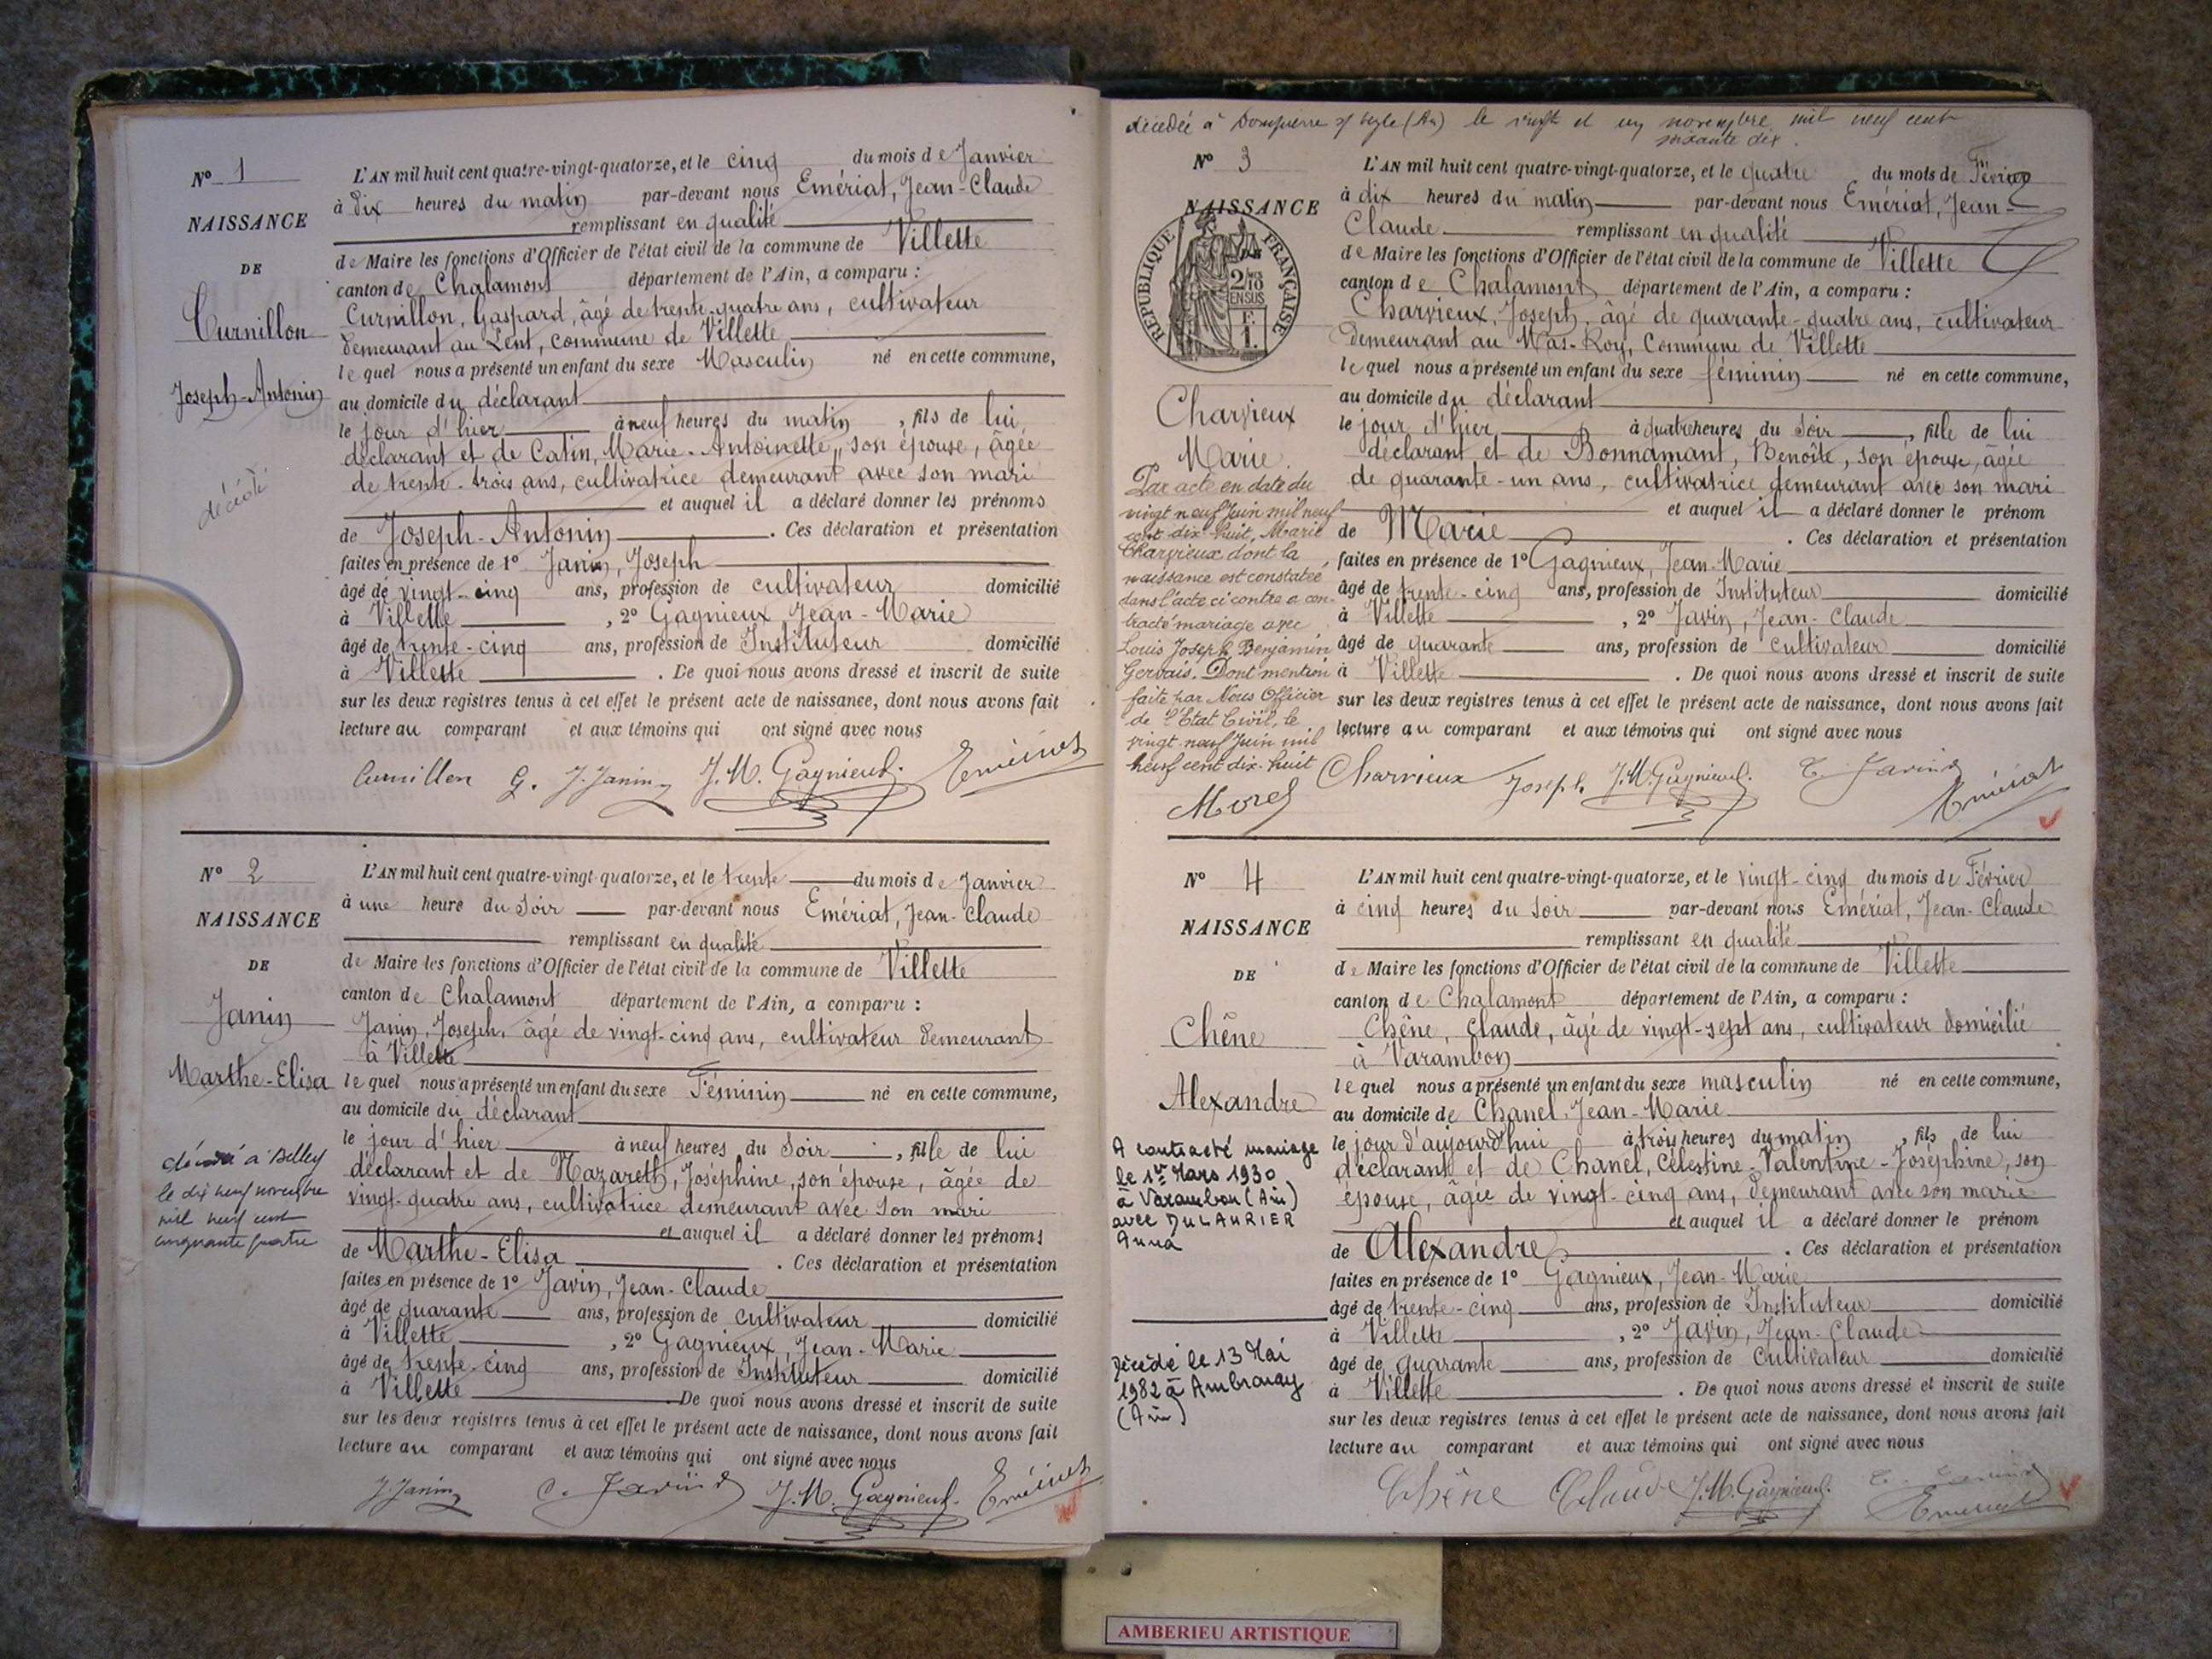 Nº 1
NAISSANCE
DE
Curnillon
Joseph-Antonin
décédé
L'AN mil huit cent quatre-vingt-quatorze, et le cinq du mois de Janvier
à dix heures du matin par-devant nous Emériat, Jean-Claude
remplissant en qualité
de Maire les fonctions d'Officier de l'état civil de la commune de Villette
canton de Chalamont département de l'Ain, a comparu :
Curnillon, Gaspard, âgé de trente-quatre ans, cultivateur
demeurant au Lent, commune de Villette
lequel nous a présenté un enfant du sexe Masculin né en cette commune,
au domicile du déclarant
le jour d'hier à neuf heures du matin, fils de lui
déclarant et de Catin, Marie-Antoinette, son épouse, âgée
de trente-trois ans, cultivatrice demeurant avec son mari
et auquel il a déclaré donner les prénoms
de Joseph-Antonin. Ces déclaration et présentation
faites en présence de 1º Janin, Joseph
âgé de vingt-cinq ans, profession de cultivateur domicilié
à Villette, 2º Gagnieux, Jean-Marie
âgé de trente-cinq ans, profession de Instituteur domicilié
à Villette. De quoi nous avons dressé et inscrit de suite
sur les deux registres tenus à cet effet le présent acte de naissance, dont nous avons fait
lecture au comparant et aux témoins qui ont signé avec nous
Curnillon G. J. Janin J.M. Gagnieux. Emériat
Nº 2
NAISSANCE
DE
Janin
Marthe-Elisa
décédé à Belley
le dix neuf novembre
mil neuf cent
cinquante quatre
L'AN mil huit cent quatre-vingt-quatorze, et le trente du mois de Janvier
à une heure du soir par-devant nous Emériat, Jean-Claude
remplissant en qualité
de Maire les fonctions d'Officier de l'état civil de la commune de Villette
canton de Chalamont département de l'Ain, a comparu :
Janin, Joseph, âgé de vingt-cinq ans, cultivateur demeurant
à Villette
lequel nous a présenté un enfant du sexe Féminin né en cette commune,
au domicile du déclarant
le jour d'hier à neuf heures du soir, fille de lui
déclarant et de Nazareth, Joséphine, son épouse, âgée de
vingt-quatre ans, cultivatrice demeurant avec son mari
et auquel il a déclaré donner les prénoms
de Marthe-Elisa. Ces déclaration et présentation
faites en présence de 1º Javin, Jean-Claude
âgé de quarante ans, profession de cultivateur domicilié
à Villette, 2º Gagnieux, Jean-Marie
âgé de trente-cinq ans, profession de Instituteur domicilié
à Villette De quoi nous avons dressé et inscrit de suite
sur les deux registres tenus à cet effet le présent acte de naissance, dont nous avons fait
lecture au comparant et aux témoins qui ont signé avec nous
J. Janin C. Javin J.M. Gagnieux. Emériat
décédée à Dompierre s/ Veyle (Ain) le vingt et un novembre mil neuf cent
soixante dix.
Nº 3
NAISSANCE
DE
REPUBLIQUE FRANÇAISE
2/10
EN SUS
F.
1.
Charvieux
Marie.
Par acte en date du
vingt neuf Juin mil neuf
cent dix-huit, Marie
Charvieux dont la
naissance est constatée
dans l'acte ci contre a con-
tracté mariage avec
Louis Joseph Benjamin
Gervais. Dont mention
faite par Nous Officier
de l'Etat Civil, le
vingt neuf Juin mil
neuf cent dix-huit
Morel
L'AN mil huit cent quatre-vingt-quatorze, et le quatre du mois de Février
à dix heures du matin par-devant nous Emériat, Jean-
Claude remplissant en qualité
de Maire les fonctions d'Officier de l'état civil de la commune de Villette
canton de Chalamont département de l'Ain, a comparu :
Charvieux, Joseph, âgé de quarante-quatre ans, cultivateur
demeurant au Mas-Roy, Commune de Villette
lequel nous a présenté un enfant du sexe féminin né en cette commune,
au domicile du déclarant
le jour d'hier à quatre heures du soir, fille de lui
déclarant et de Bonnamant, Benoîte, son épouse, âgée
de quarante-un ans, cultivatrice demeurant avec son mari
et auquel il a déclaré donner le prénom
de Marie. Ces déclaration et présentation
faites en présence de 1º Gagnieux, Jean-Marie
âgé de trente-cinq ans, profession de Instituteur domicilié
à Villette, 2º Javin, Jean-Claude
âgé de quarante ans, profession de cultivateur domicilié
à Villette. De quoi nous avons dressé et inscrit de suite
sur les deux registres tenus à cet effet le présent acte de naissance, dont nous avons fait
lecture au comparant et aux témoins qui ont signé avec nous
Charvieux Joseph J.M. Gagnieux. C. Javin Emériat
Nº 4
NAISSANCE
DE
Chêne
Alexandre
A contracté mariage
le 1er Mars 1930
à Varambon (Ain)
avec DULAURIER
Anna
Décédé le 13 Mai
1982 à Ambronay
(Ain)
L'AN mil huit cent quatre-vingt-quatorze, et le vingt-cinq du mois de Février
à cinq heures du soir par-devant nous Emériat, Jean-Claude
remplissant en qualité
de Maire les fonctions d'Officier de l'état civil de la commune de Villette
canton de Chalamont département de l'Ain, a comparu :
Chêne, Claude, âgé de vingt-sept ans, cultivateur domicilié
à Varambon
lequel nous a présenté un enfant du sexe masculin né en cette commune,
au domicile de Chanel, Jean-Marie
le jour d'aujourd'hui à trois heures du matin, fils de lui
déclarant et de Chanel, Célestine-Valentine-Joséphine, son
épouse, âgée de vingt-cinq ans, demeurant avec son marie
et auquel il a déclaré donner le prénom
de Alexandre. Ces déclaration et présentation
faites en présence de 1º Gagnieux, Jean-Marie
âgé de trente-cinq ans, profession de Instituteur domicilié
à Villette, 2º Javin, Jean-Claude
âgé de quarante ans, profession de Cultivateur domicilié
à Villette. De quoi nous avons dressé et inscrit de suite
sur les deux registres tenus à cet effet le présent acte de naissance, dont nous avons fait
lecture au comparant et aux témoins qui ont signé avec nous
Chêne Claude J.M. Gagnieux. C. Javin
Emériat
AMBERIEU ARTISTIQUE